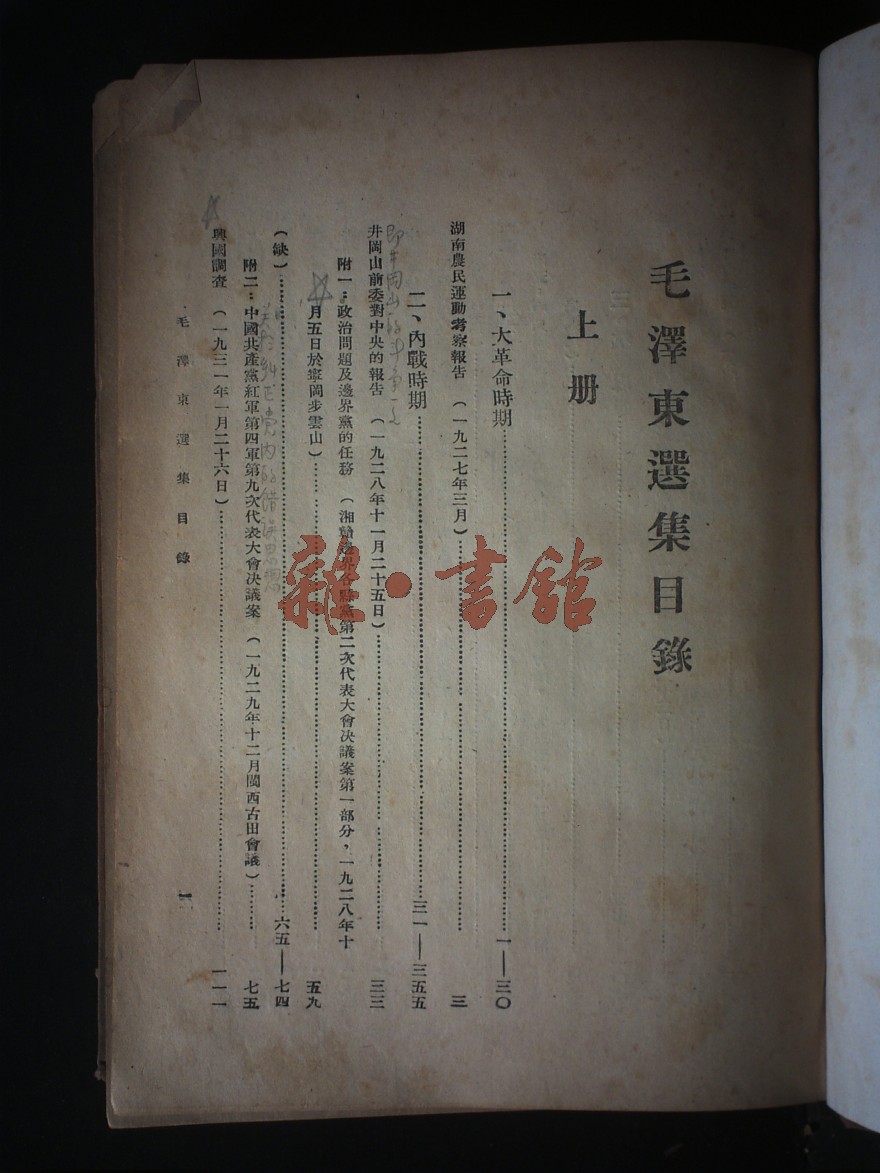 毛澤東選集目錄
上册
一、大革命時期……一—三〇
湖南農民運動考察報告（一九二七年三月）……三
二、內戰時期……三一—三五五
即井岡山的斗争一文
井岡山前委對中央的報告（一九二八年十一月二十五日）……三三
附一：政治問題及邊界黨的任務（湘贛邊界各縣黨第二次代表大會決議案第一部分，一九二八年十
月五日於寧岡步雲山）……五九
（缺）……六五—七四
附二：中國共產黨紅軍第四軍第九次代表大會決議案（一九二九年十二月閩西古田會議）……七五
糾正党内的错误思想
興國調查（一九三一年一月二十六日）……一一一
毛澤東選集目錄
一
雜·書館